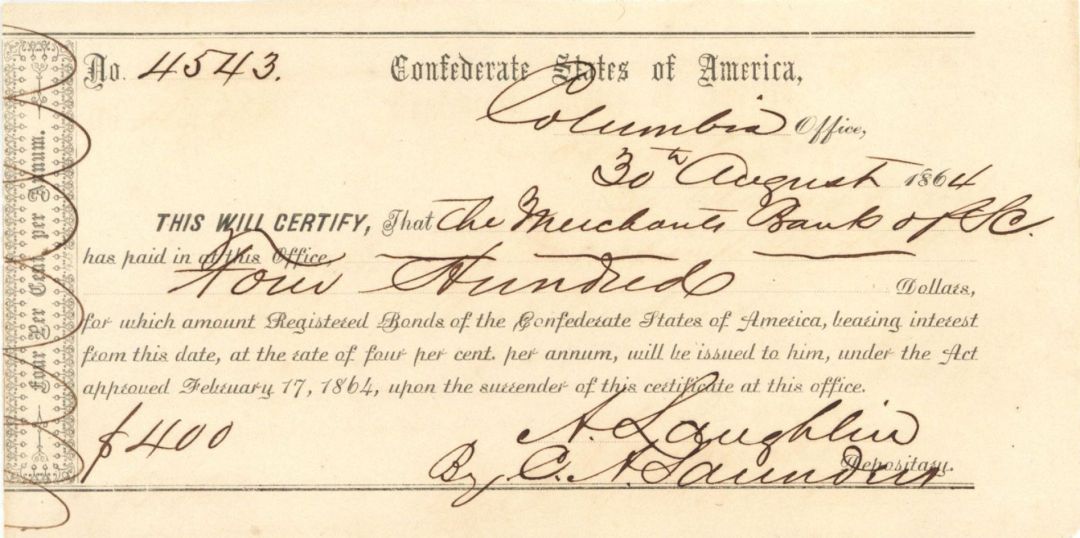 No. 4543. Confederate States of America,
Columbia Office,
30th August 1864
THIS WILL CERTIFY, That The Merchants Bank of SC.
has paid in at this Office,
Four Hundred Dollars,
for which amount Registered Bonds of the Confederate States of America, bearing interest
from this date, at the rate of four per cent. per annum, will be issued to him, under the Act
approved February 17, 1864, upon the surrender of this certificate at this office.
$400 A. Laughlin
By C. A. Saunders Depositary.
Four Per Cent. per Annum.